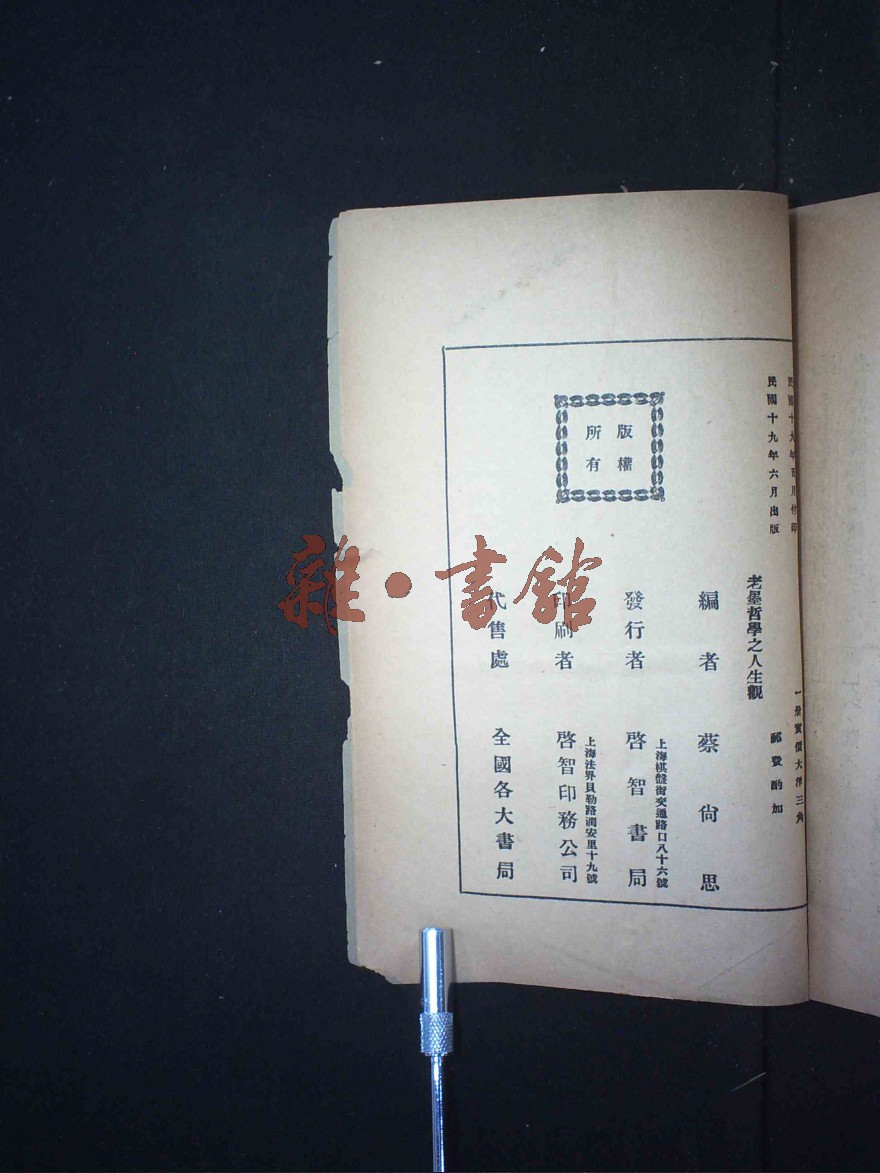 民國十九年五月付印
民國十九年六月出版
老墨哲學之人生觀
一册實價大洋三角
郵費酌加
編者 蔡尚思
發行者 啓智書局
上海棋盤街交通路口八十六號
印刷者 啓智印務公司
上海法界貝勒路潤安里十九號
代售處 全國各大書局
版權
所有
雜·書館